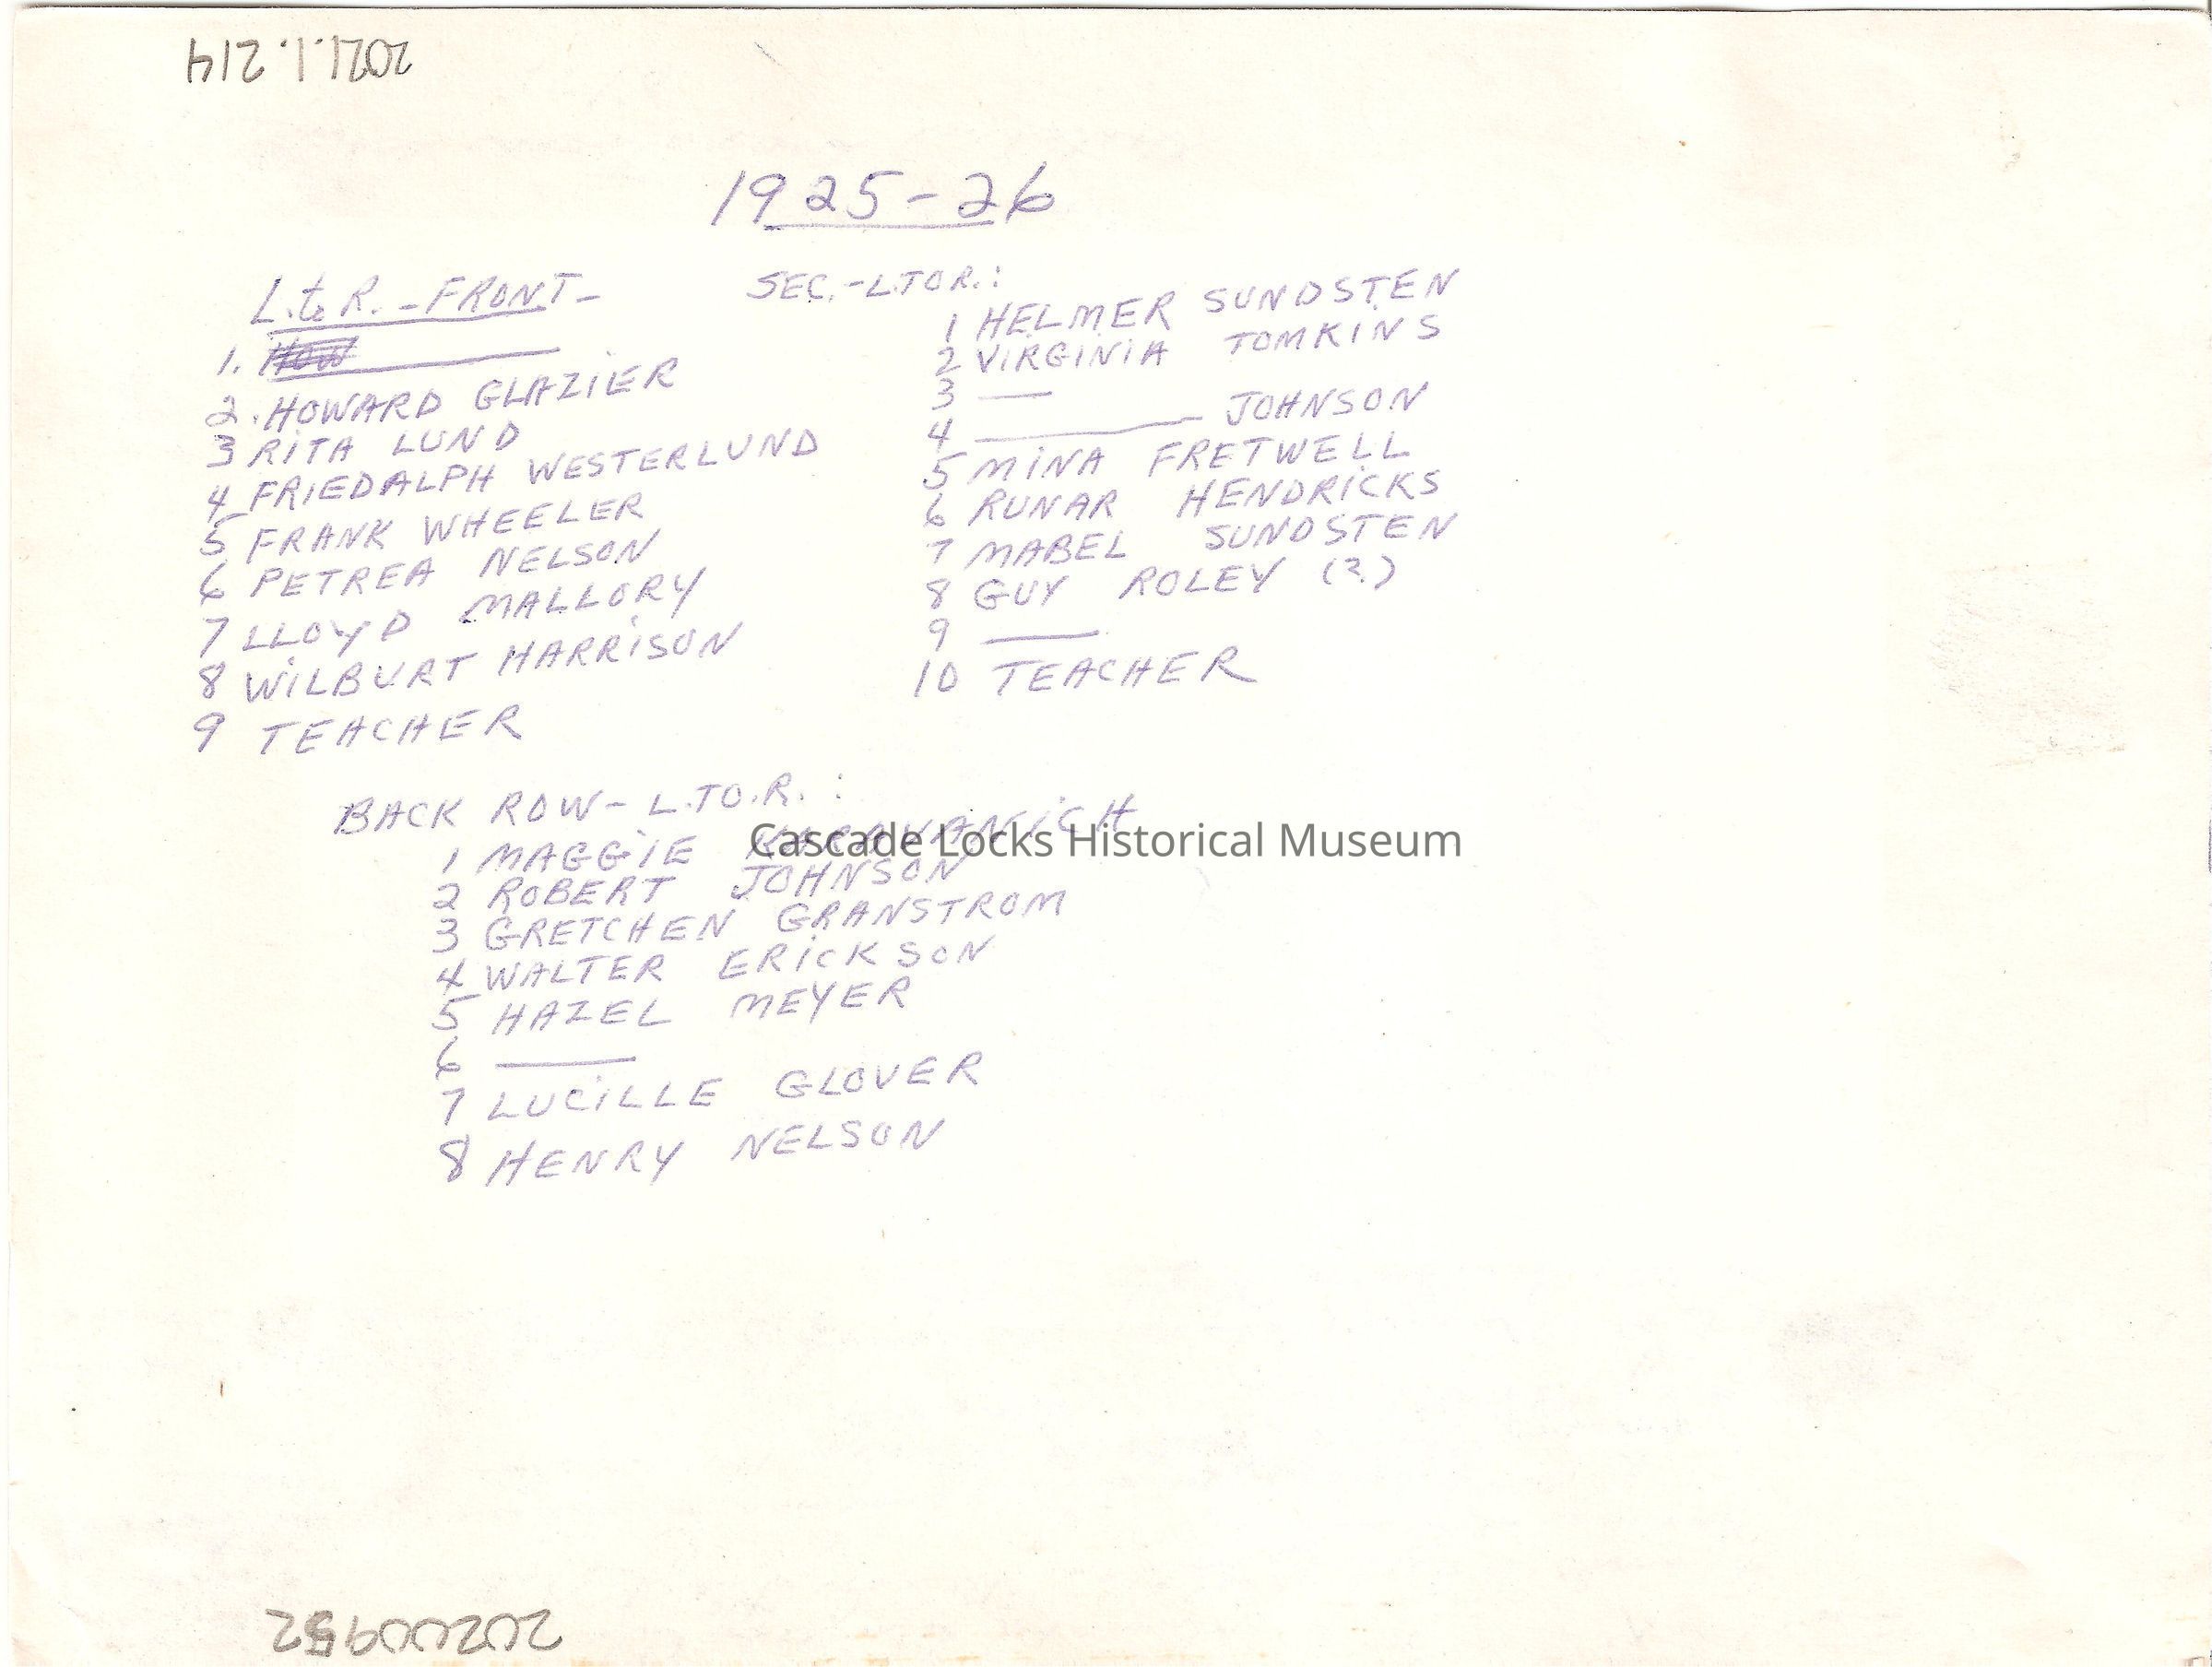 2021.1.214
1925-26
L.to R. - FRONT -
1. How
2. HOWARD GLAZIER
3 RITA LUND
4 FRIEDALPH WESTERLUND
5 FRANK WHEELER
6 PETREA NELSON
7 LLOYD MALLORY
8 WILBURT HARRISON
9 TEACHER
SEC.-L.TO R.:
1 HELMER SUNDSTEN
2 VIRGINIA TOMKINS
3 —
4 — JOHNSON
5 MINA FRETWELL
6 RUNAR HENDRICKS
7 MABEL SUNDSTEN
8 GUY ROLEY (?)
9 —
10 TEACHER
BACK ROW- L.TO.R. :
1 MAGGIE
Cascade Locks Historical Museum
2 ROBERT JOHNSON
3 GRETCHEN GRANSTROM
4 WALTER ERICKSON
5 HAZEL MEYER
6 —
7 LUCILLE GLOVER
8 HENRY NELSON
20200952